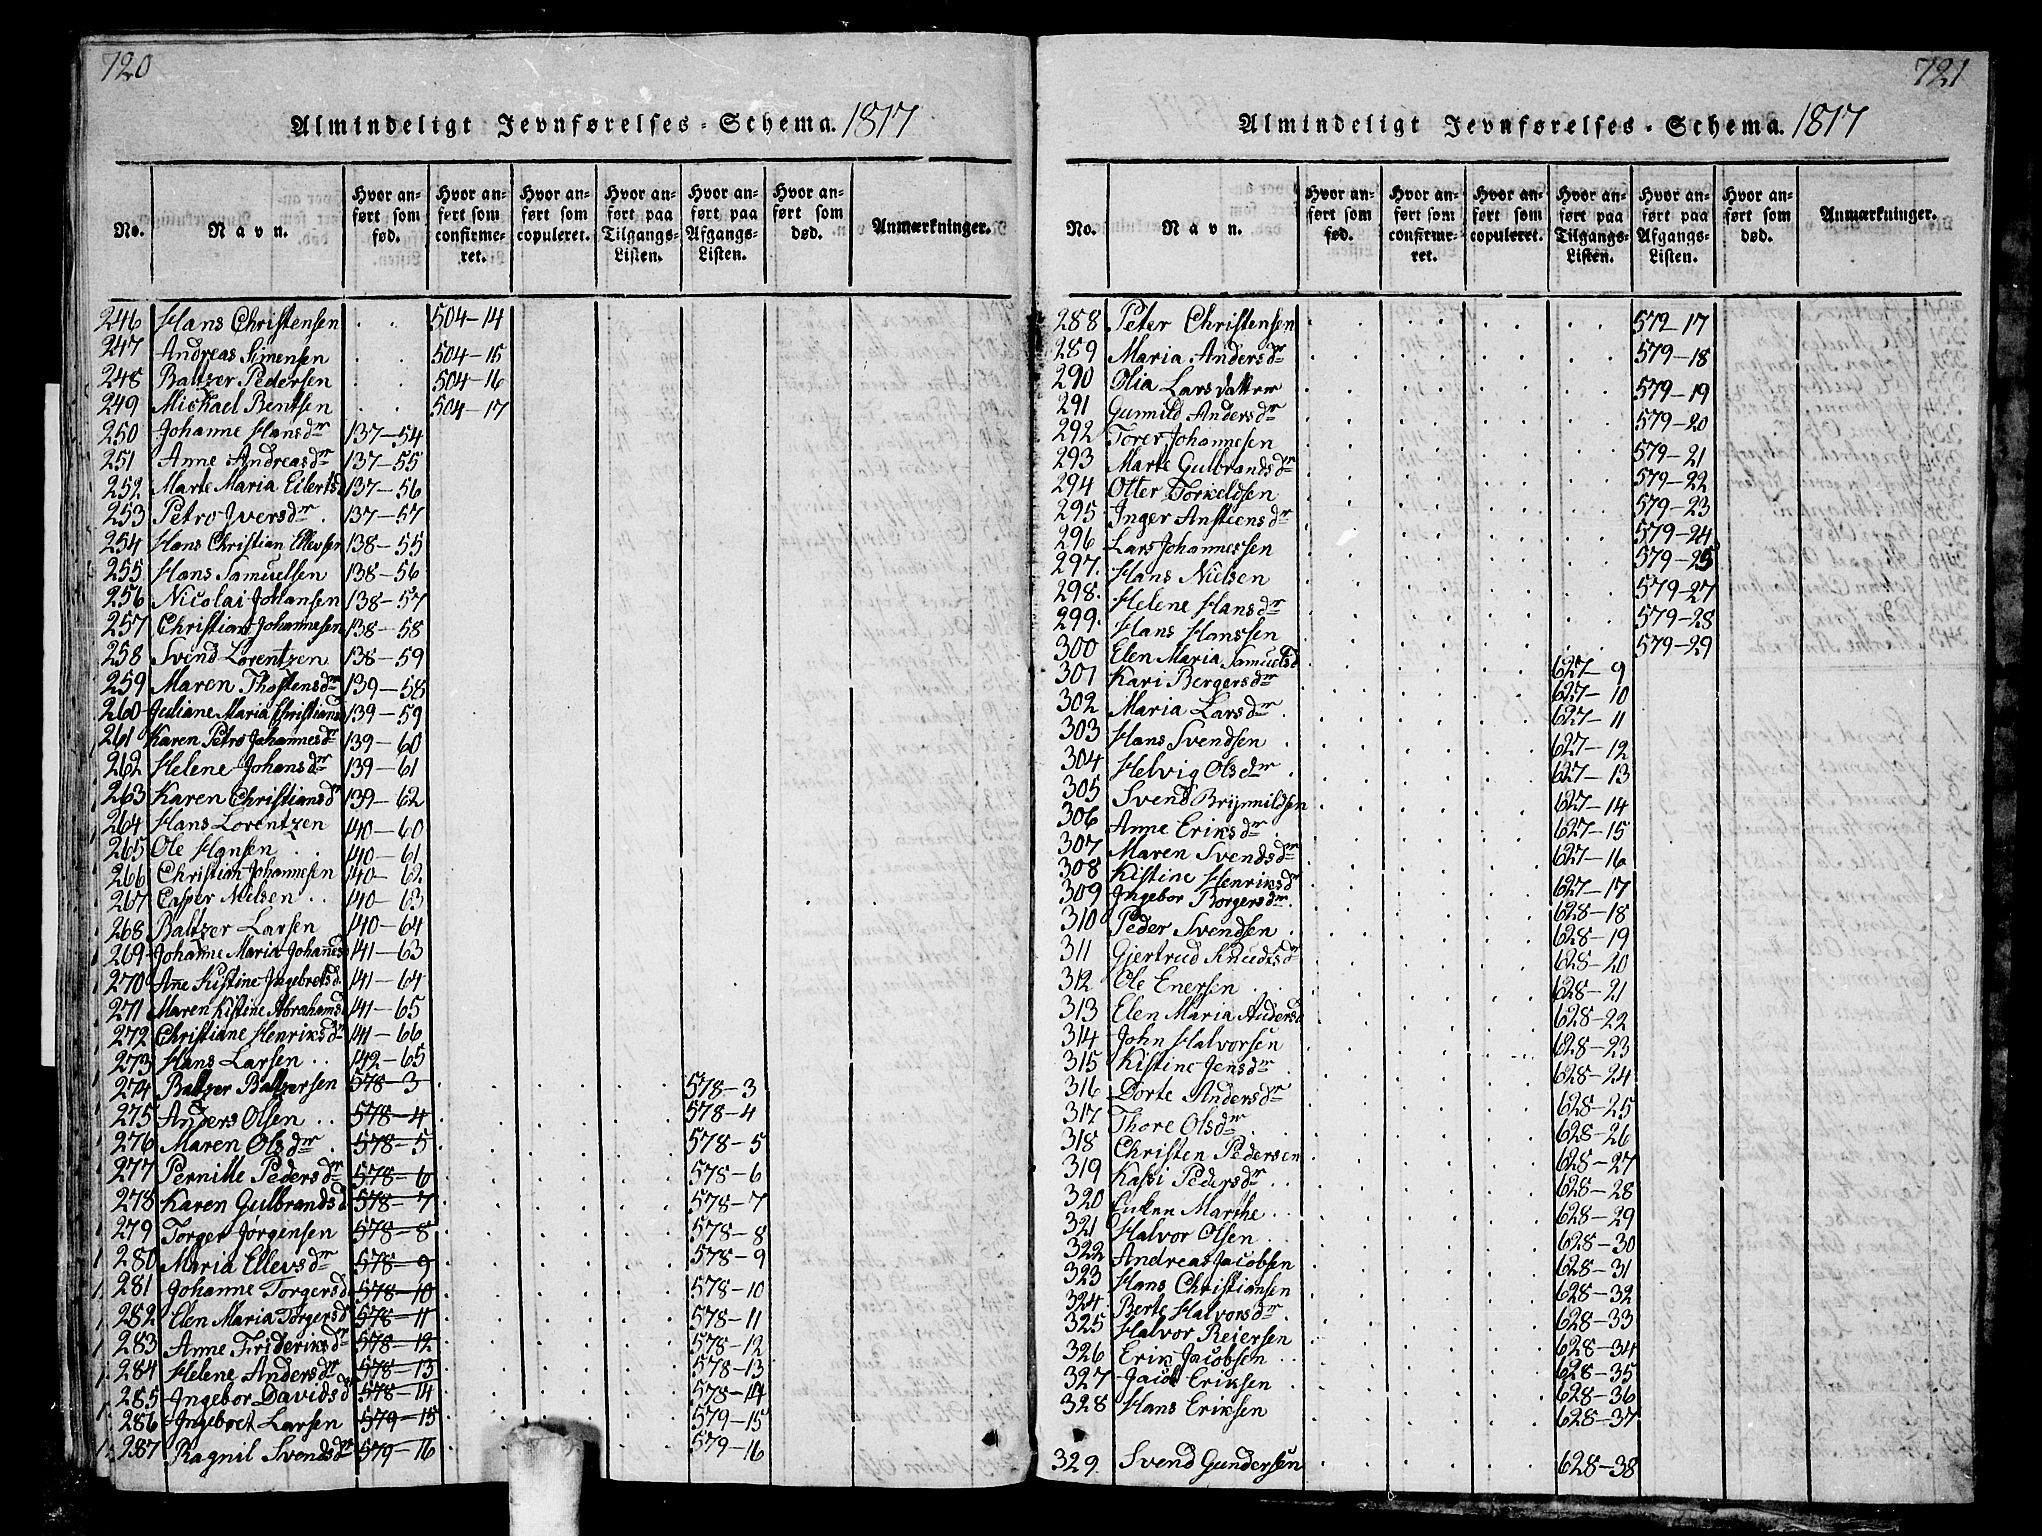 720
Almindeligt Jevnførelses-Schema. 1817
No. Navn. Hvor anført som fød. Hvor anført som confirmeret. Hvor anført som copuleret. Hvor anført paa Tilgangs-Listen. Hvor anført paa Afgangs-Listen. Hvor anført som død. Anmærkninger.
246 Hans Christensen . . 504-14
247 Andreas Simensen . . 504-15
248 Baltzer Pedersen . . 504-16
249 Michael Bentsen . . 504-17
250 Johanne Hansdr 137-54
251 Anne Andreasdr 137-55
252 Marte Maria Eilertsd 137-56
253 Petro Iversdr. 137-57
254 Hans Christian Ellevsen 138-55
255 Hans Samuelsen 138-56
256 Nicolai Johansen 138-57
257 Christian Johannesen 138-58
258 Svend Lorentzen 138-59
259 Maren Thostensdr 139-58
260 Juliane Maria Christiansd 139-59
261 Karen Petro Johannesdr 139-60
262 Helene Johansdr 139-61
263 Karen Christiansdr 139-62
264 Hans Lorentzen 140-60
265 Ole Hansen . . 140-61
266 Christian Johannesen 140-62
267 Casper Nielsen . . 140-63
268 Baltzer Larsen 140-64
269 Johanne Maria Johanesd 141-63
270 Ane Kistine Ingebretsd 141-64
271 Maren Kistine Abrahamsd 141-65
272 Christiane Henriksdr 141-66
273 Hans Larsen . . 142-65
274 Baltzer Baltzersen 578-3 578-3
275 Anders Olsen . . 578-4 578-4
276 Maren Olsdr . 578-5 578-5
277 Pernille Pedersdr 578-6 578-6
278 Karen Gulbrandsd 578-7 578-7
279 Torger Jørgensen 578-8 578-8
280 Maria Ellevsdr 578-9 578-9
281 Johanne Torgersd 578-10 578-10
282 Elen Maria Torgersd 578-11 578-11
283 Anne Frideriksdr 578-12 578-12
284 Helene Andersdr 578-13 578-13
285 Ingebor Davidsdr 578-14 578-14
286 Ingebret Larsen 579-15 579-15
287 Ragnil Svendsdr 579-16 579-16
721
Almindeligt Jevnførelses-Schema. 1817
No. Navn. Hvor anført som fød. Hvor anført som confirmeret. Hvor anført som copuleret. Hvor anført paa Tilgangs-Listen. Hvor anført paa Afgangs-Listen. Hvor anført som død. Anmærkninger.
288 Peter Christensen 572-17
289 Maria Andersdr 579-18
290 Olia Larsdatter 579-19
291 Gunnild Andersdr 579-20
292 Torer Johannesen 579-21
293 Marte Gulbrandsdr 579-22
294 Otter Torkeldsen 579-23
295 Inger Anstensdr 579-24
296 Lars Johannessen 579-25
297. Hans Nielsen 579-27
298. Helene Hansdr 579-28
299. Hans Hanssen 579-29
300 Elen Maria Samuelsd 627-9
301 Kari Bergersdr 627-10
302 Maria Larsdr. 627-11
303 Hans Svendsen . 627-12
304 Helvig Olsdr . 627-13
305 Svend Brynnildsen 627-14
306 Anne Eriksdr . 627-15
307 Maren Svendsdr 627-16
308 Kistine Henriksdr 627-17
309 Ingebor Borgersdr. 628-18
310 Peder Svendsen . 628-19
311 Gjertrud Knudtsdr 628-20
312 Ole Enersen . . 628-21
313 Elen Maria Andersd 628-22
314 John Halvorsen 628-23
315 Kistine Jensdr . 628-24
316 Dorte Andersdr 628-25
317 Thore Olsdr . . 628-26
318 Christen Pedersen 628-27
319 Kassi Pedersdr . . 628-28
320 Marthe . . 628-29
321 Halvor Olsen . . 628-30
322 Andreas Jacobsen 628-31
323 Hans Christiansen 628-32
324. Berte Halvorsdr 628-33
325 Halvor Reiersen 628-34
326 Erik Jacobsen . . 628-35
327 Jacob Eriksen . 628-36
328 Hans Eriksen 628-37
329. Svend Gundersen 628-38